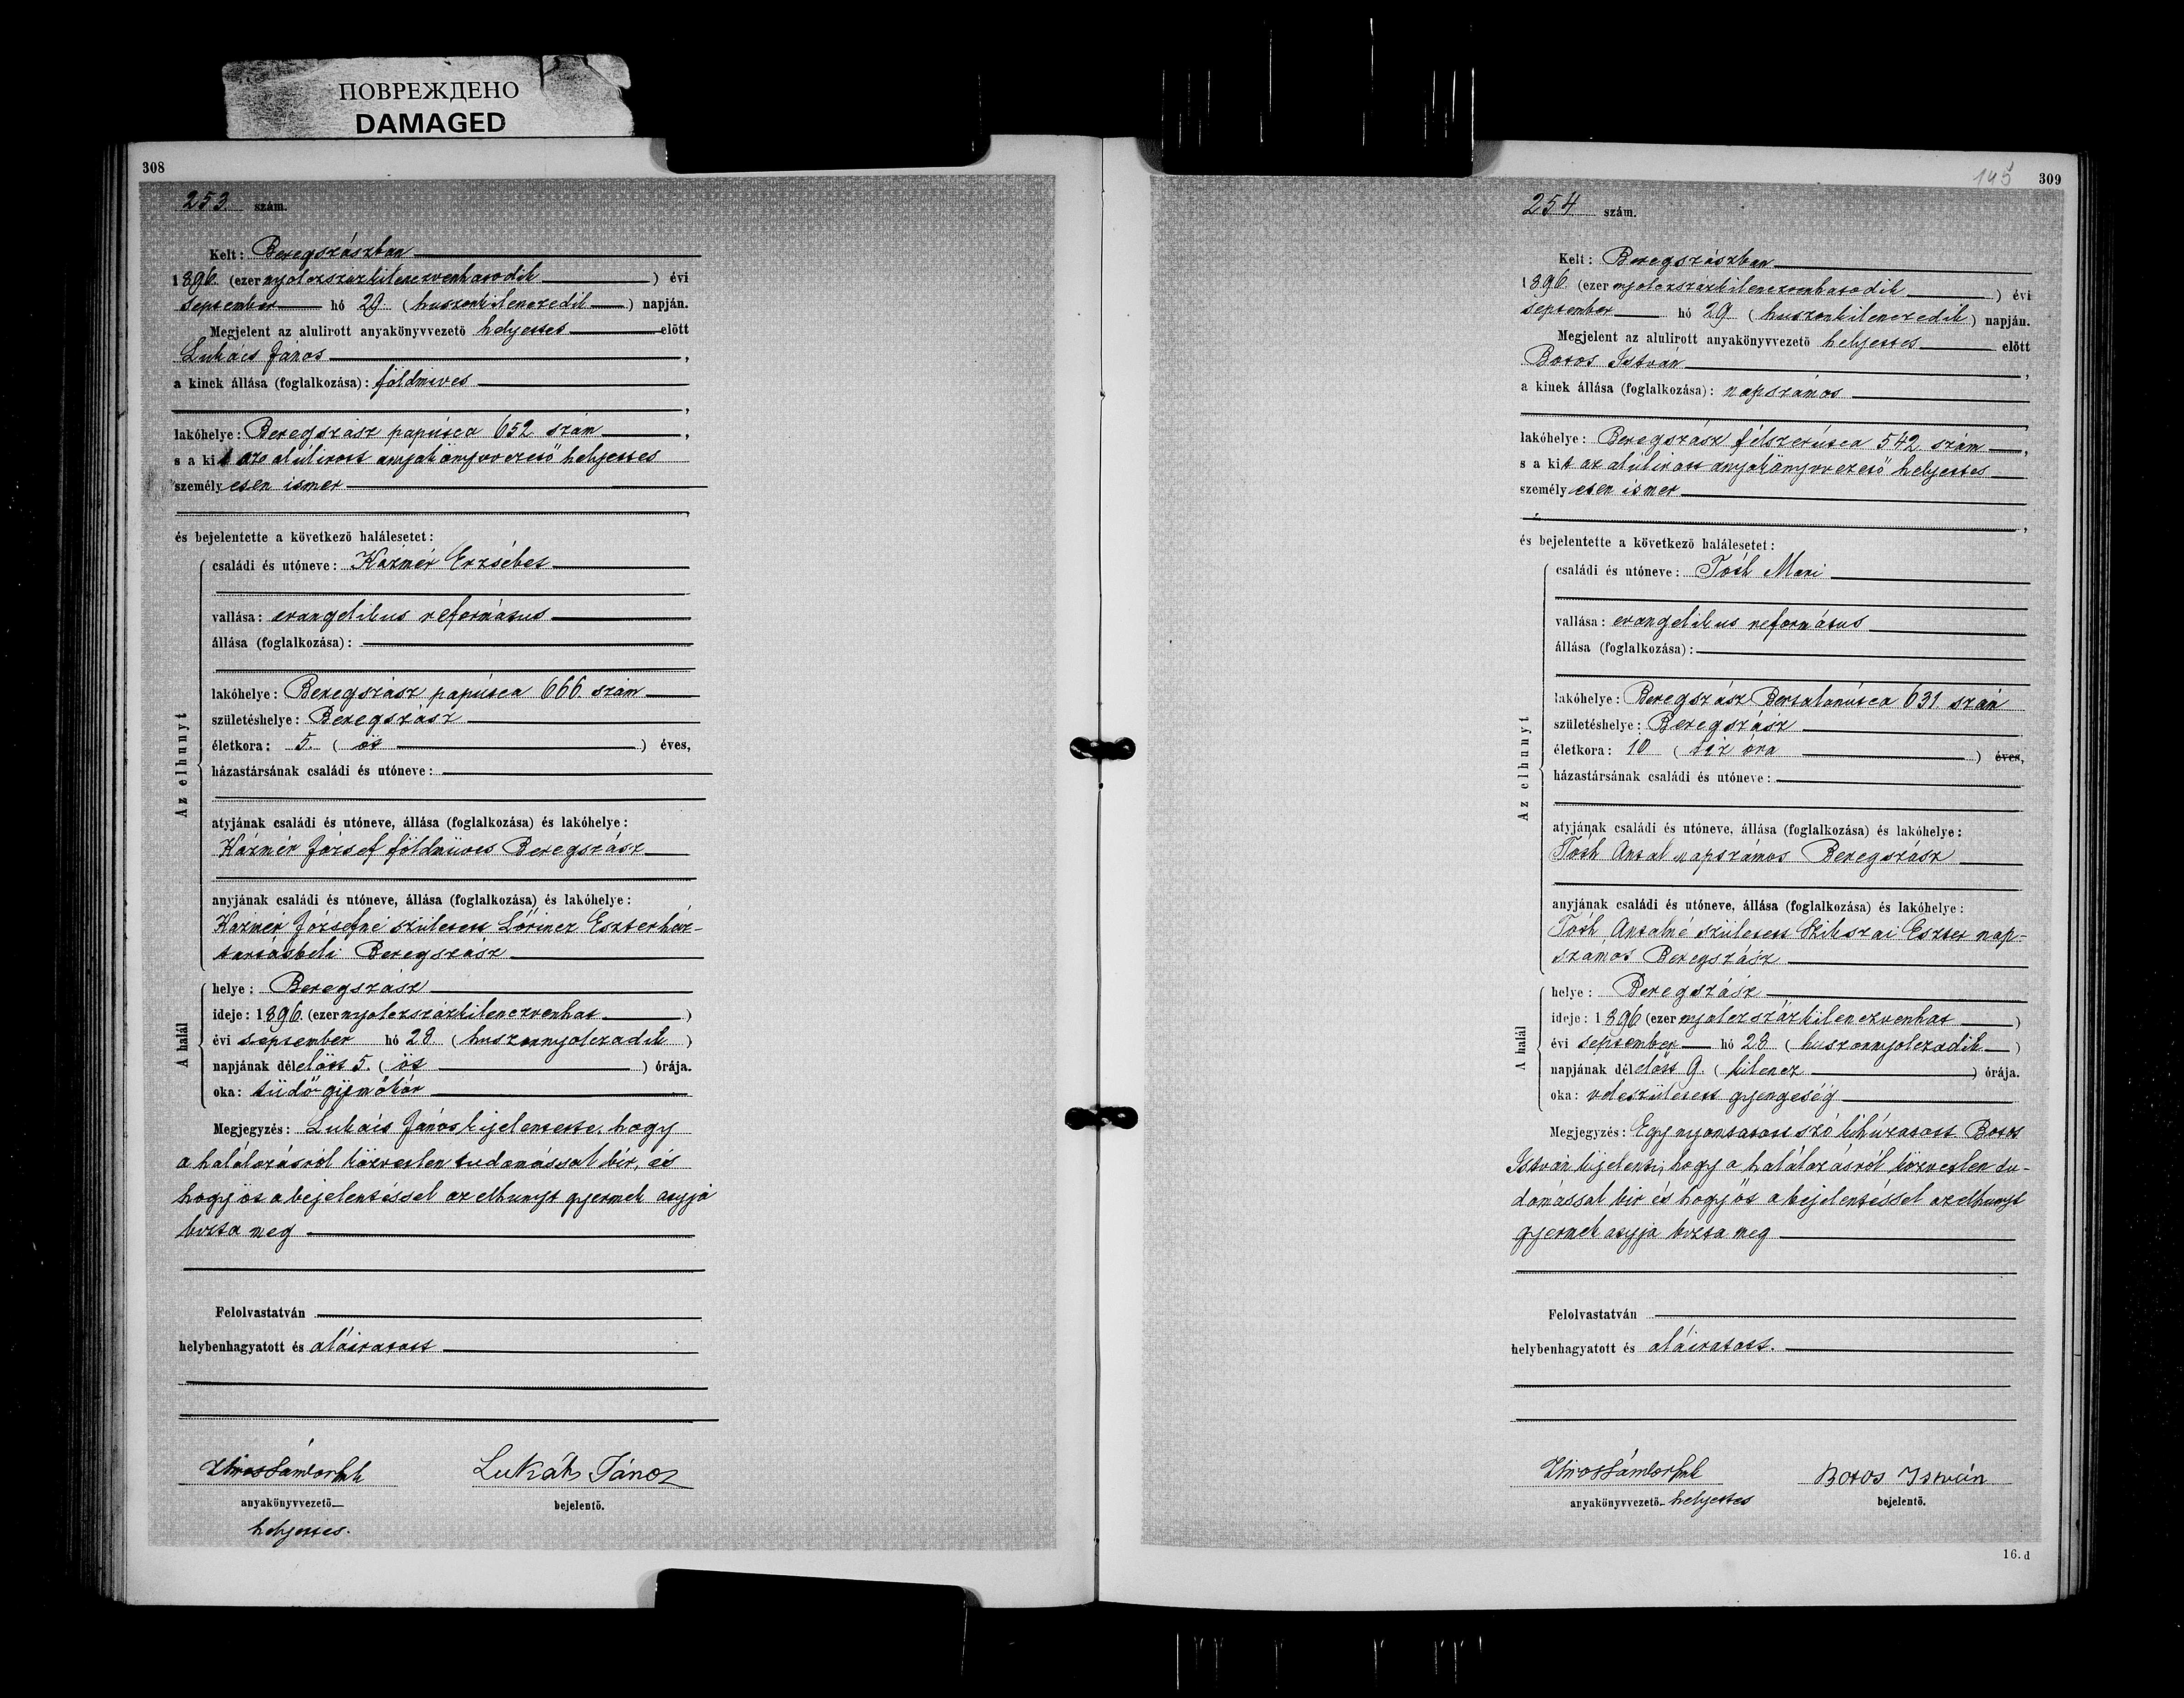 ПОВРЕЖДЕНО
DAMAGED
308
253 szám.
Kelt: Beregszászban
1896. (ezer nyolczszázkilenczvenhatodik) évi
september hó 29. (huszonkilenczedik) napján.
Megjelent az alulirott anyakönyvvezető helyettes előtt
Lukács János,
a kinek állása (foglalkozása): földmives
,
lakóhelye: Beregszász paputca 652 szám,
s a kit az alúlirott anyakönyvvezető helyettes
személyesen ismer
,
és bejelentette a következő halálesetet:
Az elhunyt
családi és utóneve: Kázmér Erzsébet
vallása: evangelikus református
állása (foglalkozása):
lakóhelye: Beregszász paputca 666. szám
születéshelye: Beregszász
életkora: 5. (öt) éves,
házastársának családi és utóneve:
atyjának családi és utóneve, állása (foglalkozása) és lakóhelye:
Kázmér József földmüves Beregszász
anyjának családi és utóneve, állása (foglalkozása) és lakóhelye:
Kázmér Józsefné született Lőrincz Eszter ház-
tartásbeli Beregszász
A halál
helye: Beregszász
ideje: 1896. (ezer nyolczszázkilenczvenhat)
évi september hó 28. (huszonnyolczadik)
napjának délelőtt 5. (öt) órája.
oka: tüdő-gümőkór
Megjegyzés: Lukács János kijelentette, hogy
a halálozásról közvetlen tudomással bír, és
hogy öt a bejelentéssel az elhunyt gyermek atyja
bízta meg
Felolvastatván
helybenhagyatott és aláiratott
Lukáts János
anyakönyvvezető
helyettes.
bejelentő.
145
309
254 szám.
Kelt: Beregszászban
1896. (ezer nyolczszázkilenczvenhatodik) évi
september hó 29 (huszonkilenczedik) napján.
Megjelent az alulirott anyakönyvvezető helyettes előtt
Botos István,
a kinek állása (foglalkozása): napszámos
,
lakóhelye: Beregszász félszerútca 542 szám,
s a kit az alulirott anyakönyvvezető helyettes
személyesen ismer
,
és bejelentette a következő halálesetet:
Az elhunyt
családi és utóneve: Tóth Mari
vallása: evangelikus református
állása (foglalkozása):
lakóhelye: Beregszász Bertalanútca 631 szám
születéshelye: Beregszász
életkora: 10 (tiz óra) éves,
házastársának családi és utóneve:
atyjának családi és utóneve, állása (foglalkozása) és lakóhelye:
Tóth Antal napszámos Beregszász
anyjának családi és utóneve, állása (foglalkozása) és lakóhelye:
Tóth Antalné született Szikszai Eszter nap-
számos Beregszász
A halál
helye: Beregszász
ideje: 1896 (ezer nyolczszázkilenczvenhat)
évi september hó 28 (huszonnyolczadik)
napjának délelőtt 9. (kilencz) órája.
oka: veleszületett gyengeség
Megjegyzés: Egy nyomtatott szó kihúzatott. Botos
István kijelenti, hogy a halálozásról közvetlen tu-
domással bir és hogy öt a bejelentéssel az elhunyt
gyermek atyja bizta meg
Felolvastatván
helybenhagyatott és aláiratott.
Botos István
anyakönyvvezető helyettes
bejelentő.
16. d